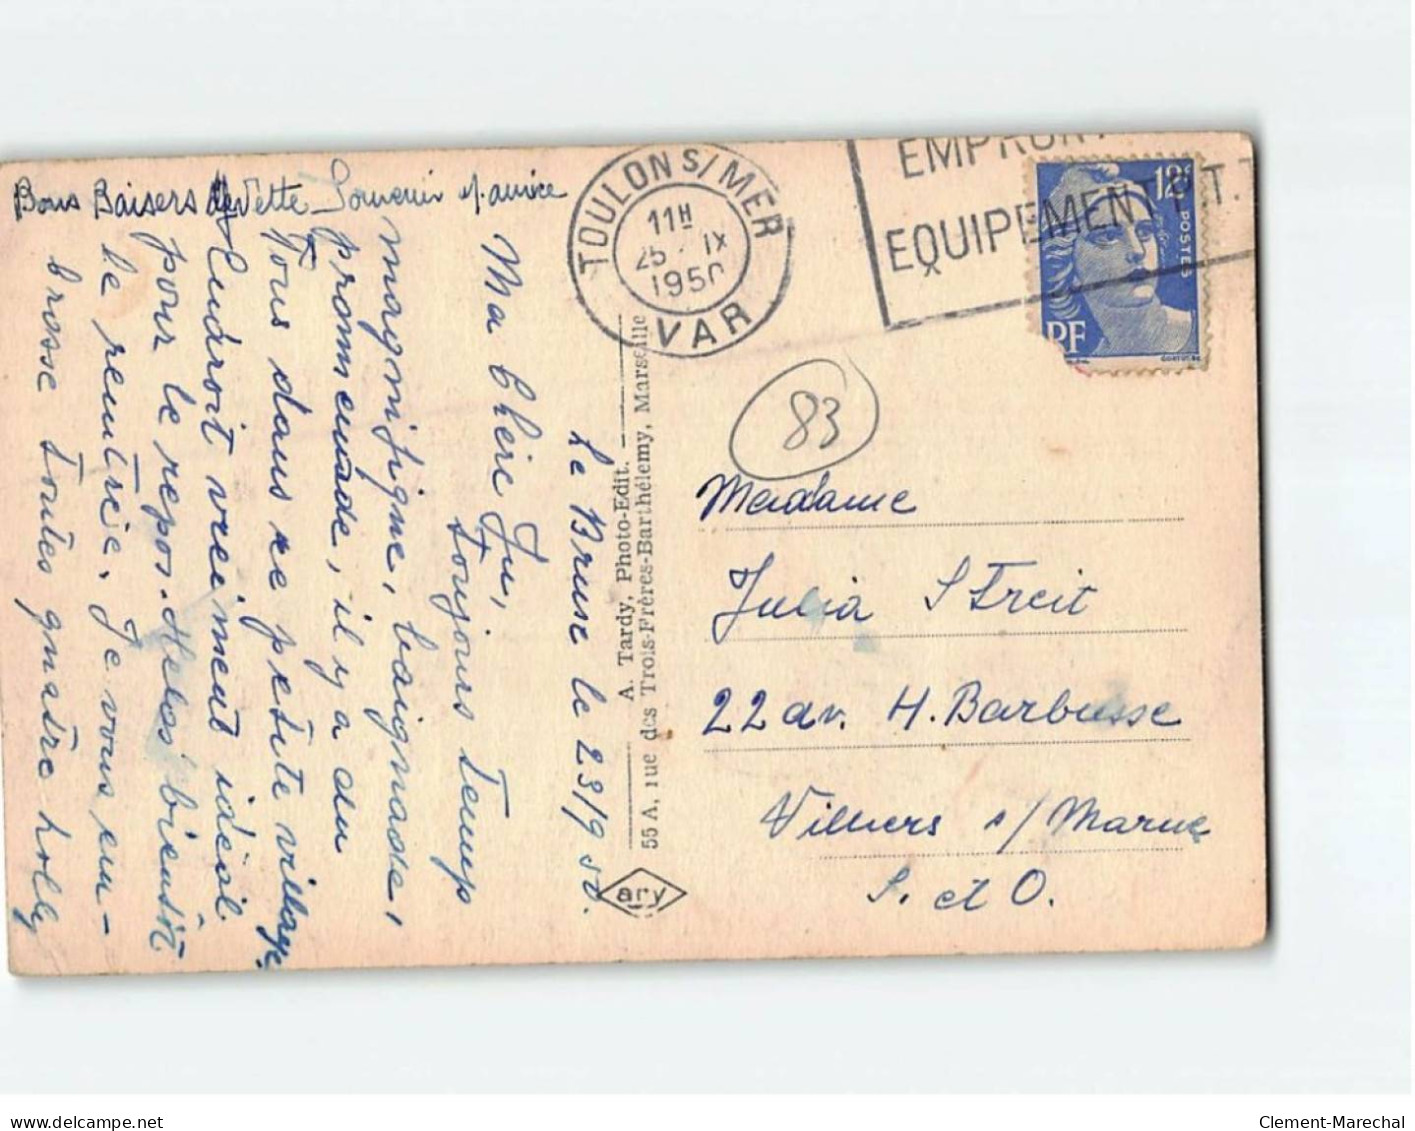 Bons Baisers de Vette Souvenir
Le Brusc le 23/9 50.
Ma Chère Ju,
Toujours Temps
magnifique, baignade,
promenade, il y a du
Tous dans ce petite village
L'endroit vrei.ment idéal
pour le repos. Helas bientôt
le rentrée. Je vous em-
brasse toutes quatre Lolly
TOULON S/ MER
11H
25 - IX
1950
VAR
EMPRUNT
EQUIPEMENT P.T.T.
12F
POSTES
RF
83
A. Tardy, Photo-Edit.
55 A, rue des Trois-Frères-Barthélemy, Marseille
ary
Madame
Julia Streit
22 av. H. Barbusse
Villiers s/ Marne
S. et O.
delcampe.net
Clement-Marechal